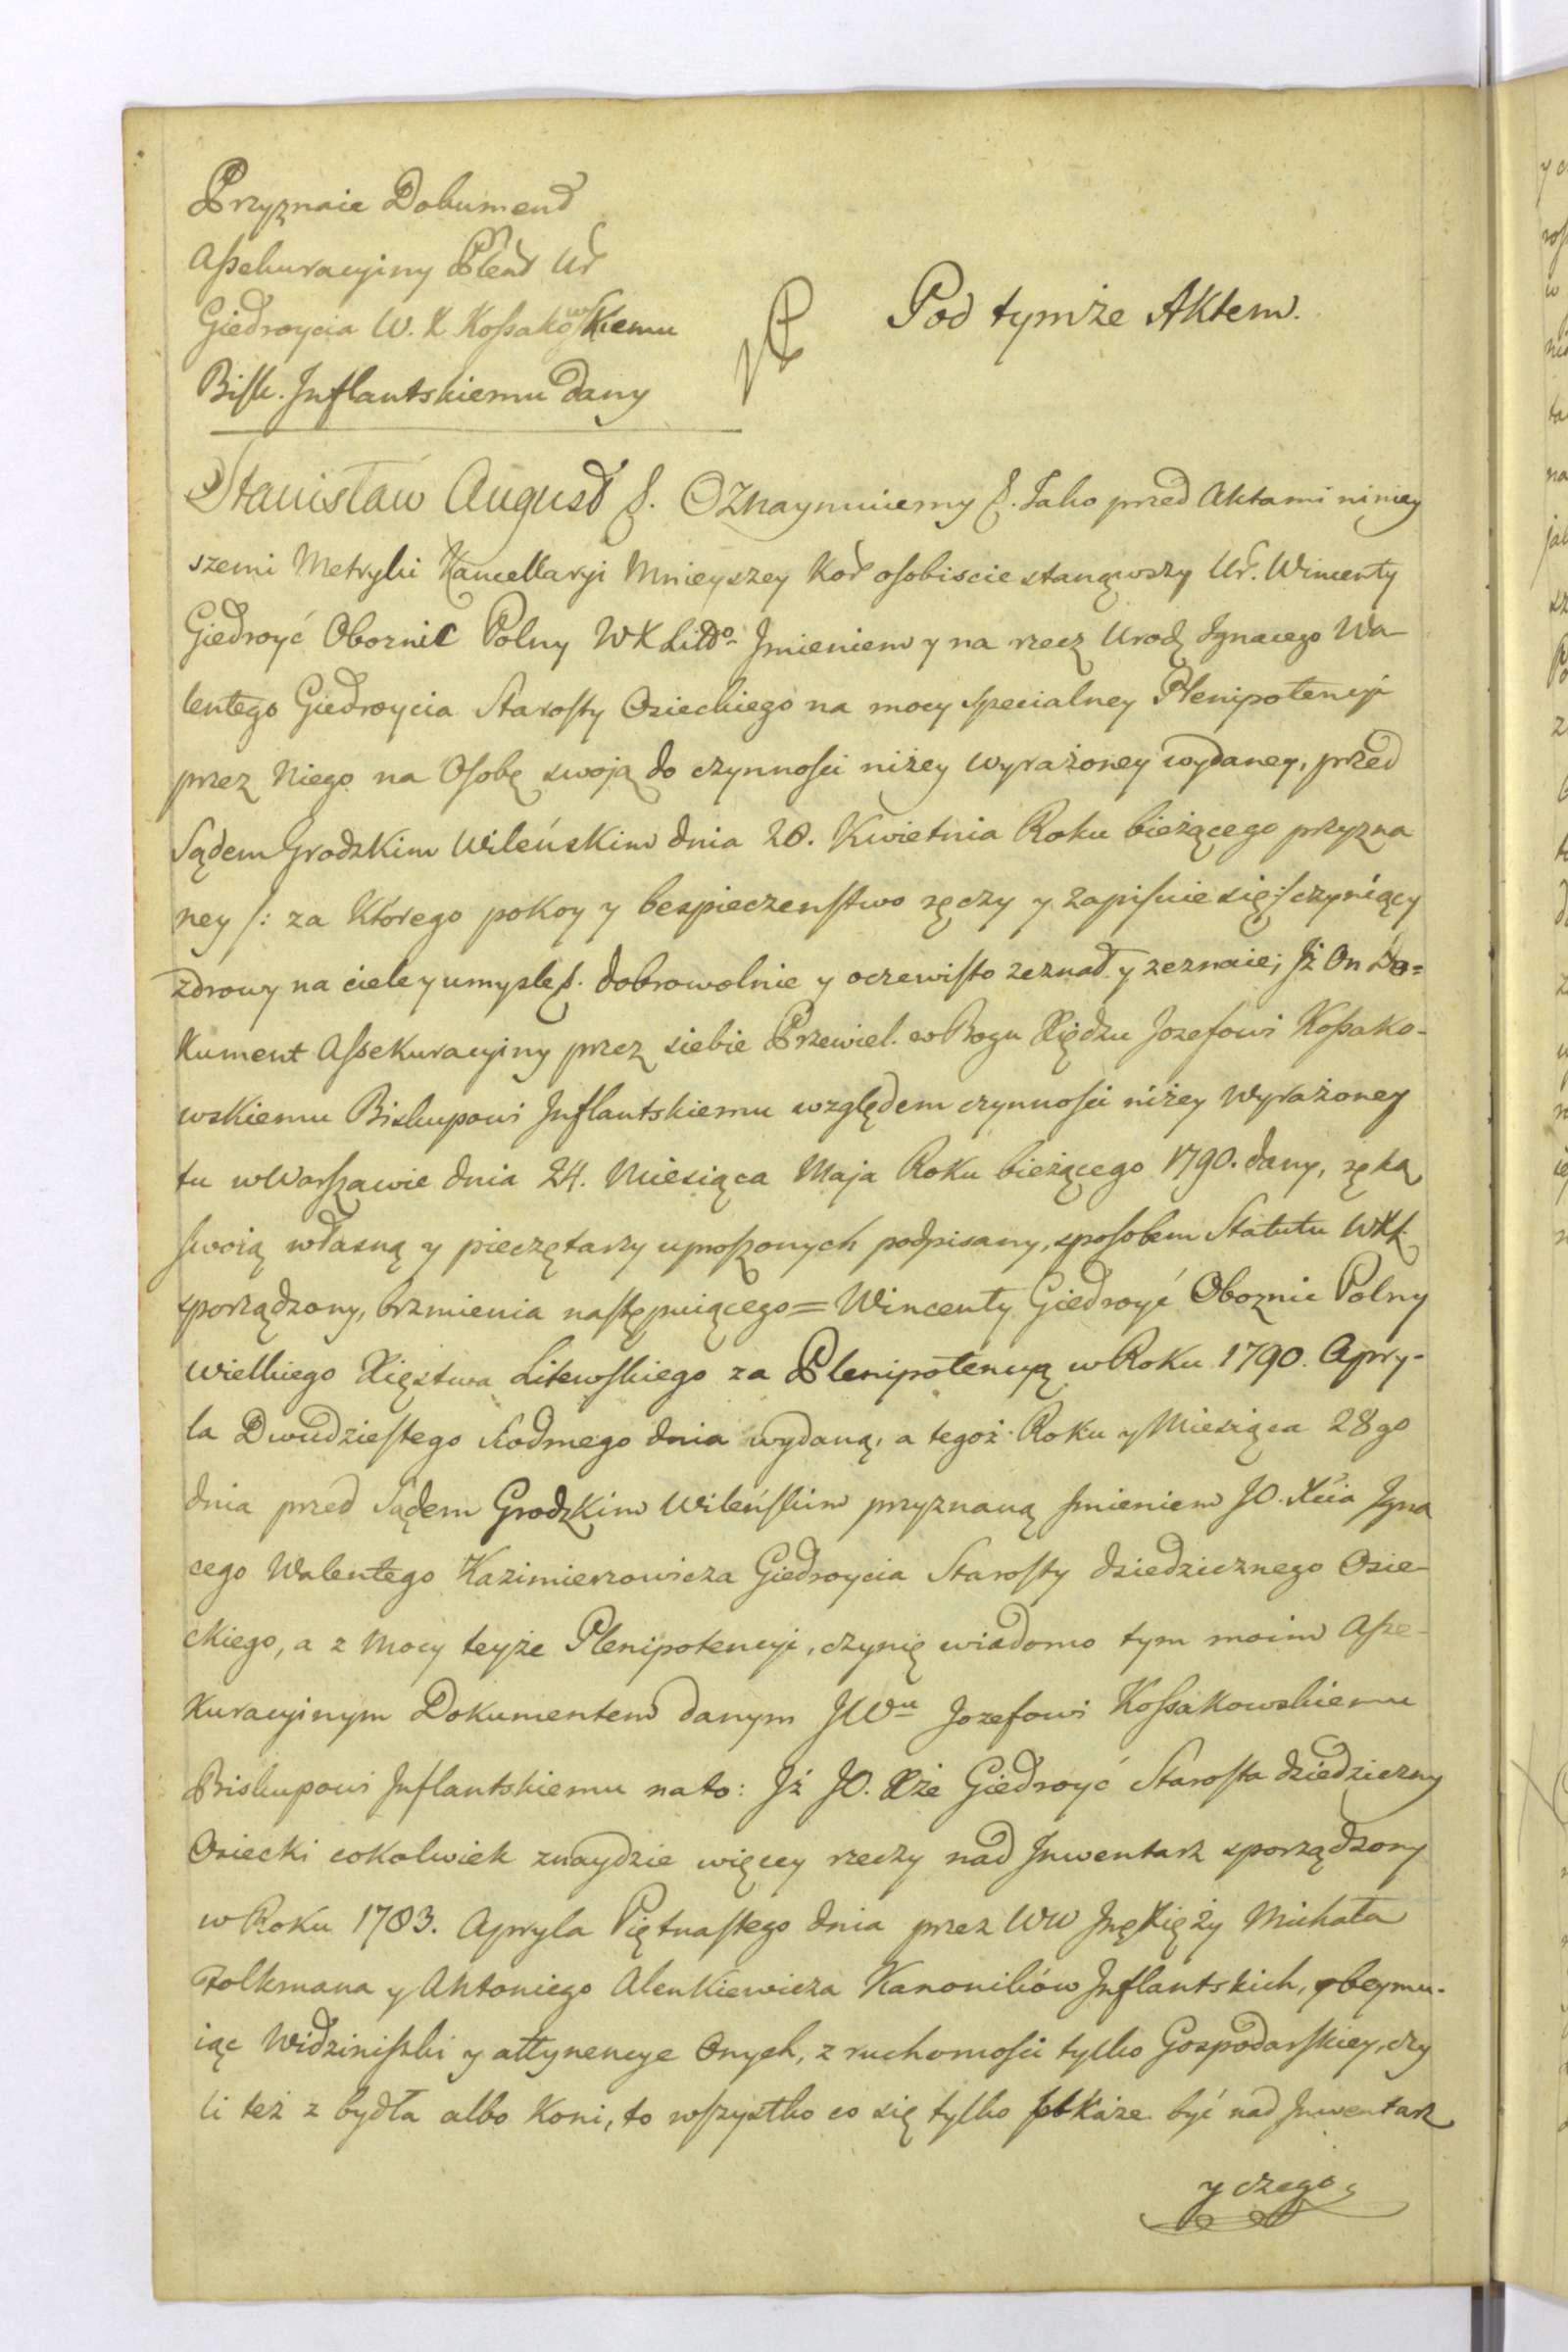 Przyznaie Dokument
Assekuracyiny Plent Ur
Giedroycia W. X Kossakowskiemu
Bisk. Inflantskiemu dany
Pod tymże Aktem.
Stanisław August &. Oznaymuiemy &. Jako przed Aktami niniey
szemi Metryki Kancellaryi Mnieyszey Kor osobiscie stanąwszy Ur. Wincenty
Giedroyć Oboznic Polny WX Litto Jmieniem y na rzecz Urodz Ignacego Wa-
lentego Giedroycia Starosty Osieckiego na mocy specialney Plenipotencyi
przez Niego na Osobę swoją do czynnosci niżey wyrażoney wydaney, przed
Sądem Grodzkim Wileńskim dnia 28. Kwietnia Roku bieżącego przyzna
ney /: za Którego pokoy y bespieczenstwo ręczy y zapisuie się :/ czyniący
zdrowy na ciele y umysle &. dobrowolnie y oczewisto zeznał y zeznaie; Jż On Do=
kument Assekuracyiny przez siebie Przewiel. w Bogu Xiędzu Jozefowi Kossako-
wskiemu Biskupowi Inflantskiemu względem czynnosci niżey Wyrażoney
tu w Warszawie dnia 24. Miesiąca Maja Roku bieżącego 1790. dany, ręką
swoią własną y pieczętarzy uproszonych podpisany, sposobem Statutu WXL
sporządzony, brzmienia następuiącego = Wincenty Giedroyć Oboznic Polny
Wielkiego Xięstwa Litewskiego za Plenipotencyą w Roku 1790. Apry-
la Dwudziestego siodmego dnia wydaną, a tegoż Roku y Miesiąca 28go
dnia przed Sądem Grodzkim Wileńskim przyznaną Jmieniem JO. Xcia Igna
cego Walentego Kazimierzowicza Giedroycia Starosty dziedzicznego Osie-
ckiego, a z Mocy teyże Plenipotencyi, czynię wiadomo tym moim Asse-
kuracyinym Dokumentem danym JWu Jozefowi Kossakowskiemu
Biskupowi Inflantskiemu na to: Jż JO. Xże Giedroyć Starosta dziedziczny
Osiecki cokolwiek znaydzie więcey rzeczy nad Inwentarz sporządzony
w Roku 1783. Apryla Piętnastego dnia przez WW Xięży Michała
Folkmana y Antoniego Alenkiewicza Kanoników Inflantskich, obeymu-
iąc Widziniszki y attynencye Onych, z ruchomosci tylko Gospodarskiey, czy
li też z bydła albo Koni, to wszystko co się tylko pokaże być nad Inwentarz
y czego